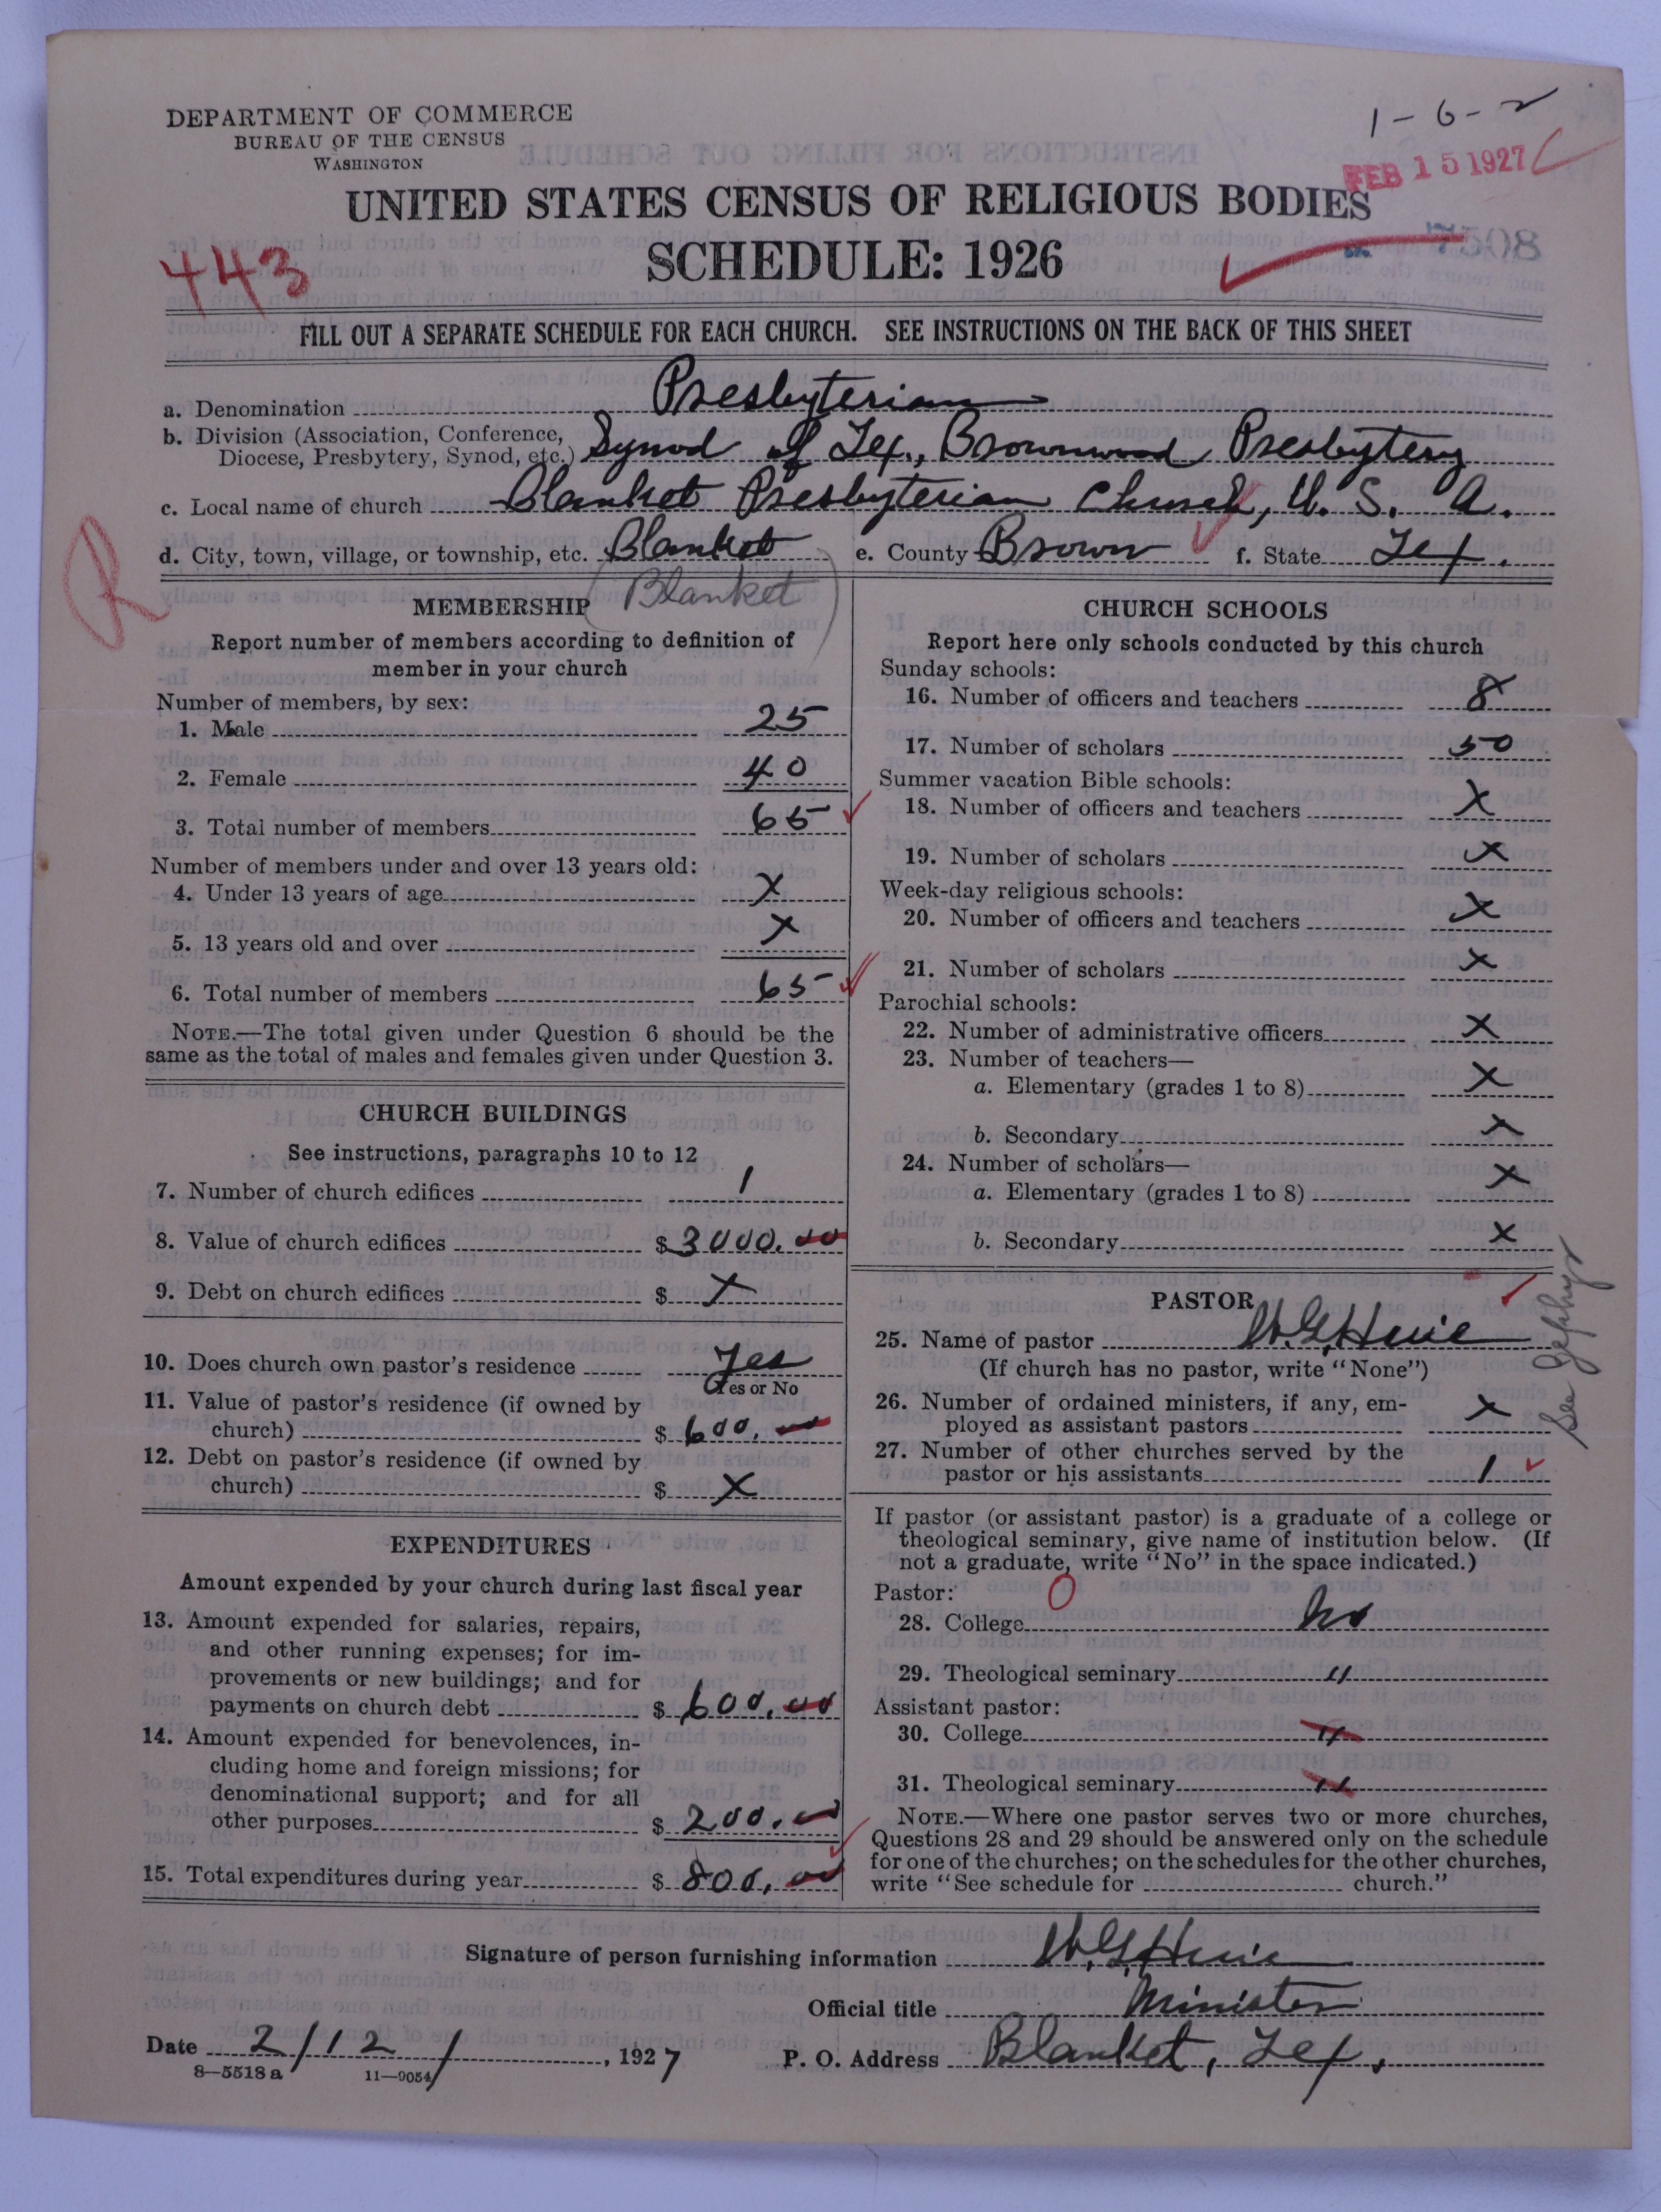 DEPARTMENT OF COMMERCE
BUREAU OF THE CENSUS
WASHINGTON
1-6-2
FEB 15 1927
UNITED STATES CENSUS OF RELIGIOUS BODIES
SCHEDULE: 1926
7508
443
FILL OUT A SEPARATE SCHEDULE FOR EACH CHURCH. SEE INSTRUCTIONS ON THE BACK OF THIS SHEET
a. Denomination Presbyterian
b. Division (Association, Conference, Diocese, Presbytery, Synod, etc.) Synod of Tex., Brownwood Presbytery
c. Local name of church Blanket Presbyterian Church, U. S. A.
d. City, town, village, or township, etc. Blanket e. County Brown f. State Tex.
R
(Blanket)
MEMBERSHIP
Report number of members according to definition of
member in your church
Number of members, by sex:
1. Male 25
2. Female 40
3. Total number of members 65
Number of members under and over 13 years old:
4. Under 13 years of age X
5. 13 years old and over X
6. Total number of members 65
NOTE.—The total given under Question 6 should be the
same as the total of males and females given under Question 3.
CHURCH BUILDINGS
See instructions, paragraphs 10 to 12
7. Number of church edifices 1
8. Value of church edifices $ 3000.00
9. Debt on church edifices $ X
10. Does church own pastor's residence Yes
Yes or No
11. Value of pastor's residence (if owned by
church) $ 600.
12. Debt on pastor's residence (if owned by
church) $ X
EXPENDITURES
Amount expended by your church during last fiscal year
13. Amount expended for salaries, repairs,
and other running expenses; for im-
provements or new buildings; and for
payments on church debt $ 600.00
14. Amount expended for benevolences, in-
cluding home and foreign missions; for
denominational support; and for all
other purposes $ 200.
15. Total expenditures during year $ 800.00
CHURCH SCHOOLS
Report here only schools conducted by this church
Sunday schools:
16. Number of officers and teachers 8
17. Number of scholars 50
Summer vacation Bible schools:
18. Number of officers and teachers X
19. Number of scholars X
Week-day religious schools:
20. Number of officers and teachers X
21. Number of scholars X
Parochial schools:
22. Number of administrative officers X
23. Number of teachers—
a. Elementary (grades 1 to 8) X
b. Secondary X
24. Number of scholars—
a. Elementary (grades 1 to 8) X
b. Secondary X
PASTOR
25. Name of pastor W.G. Huie
(If church has no pastor, write "None")
26. Number of ordained ministers, if any, em-
ployed as assistant pastors X
27. Number of other churches served by the
pastor or his assistants 1
See Zephyr
If pastor (or assistant pastor) is a graduate of a college or
theological seminary, give name of institution below. (If
not a graduate, write "No" in the space indicated.)
Pastor: O
28. College No
29. Theological seminary "
Assistant pastor:
30. College "
31. Theological seminary "
NOTE.—Where one pastor serves two or more churches,
Questions 28 and 29 should be answered only on the schedule
for one of the churches; on the schedules for the other churches,
write "See schedule for church."
Signature of person furnishing information W.G. Huie
Official title Minister
Date 2/12/, 1927 P. O. Address Blanket, Tex.
8—5518 a 11—9054